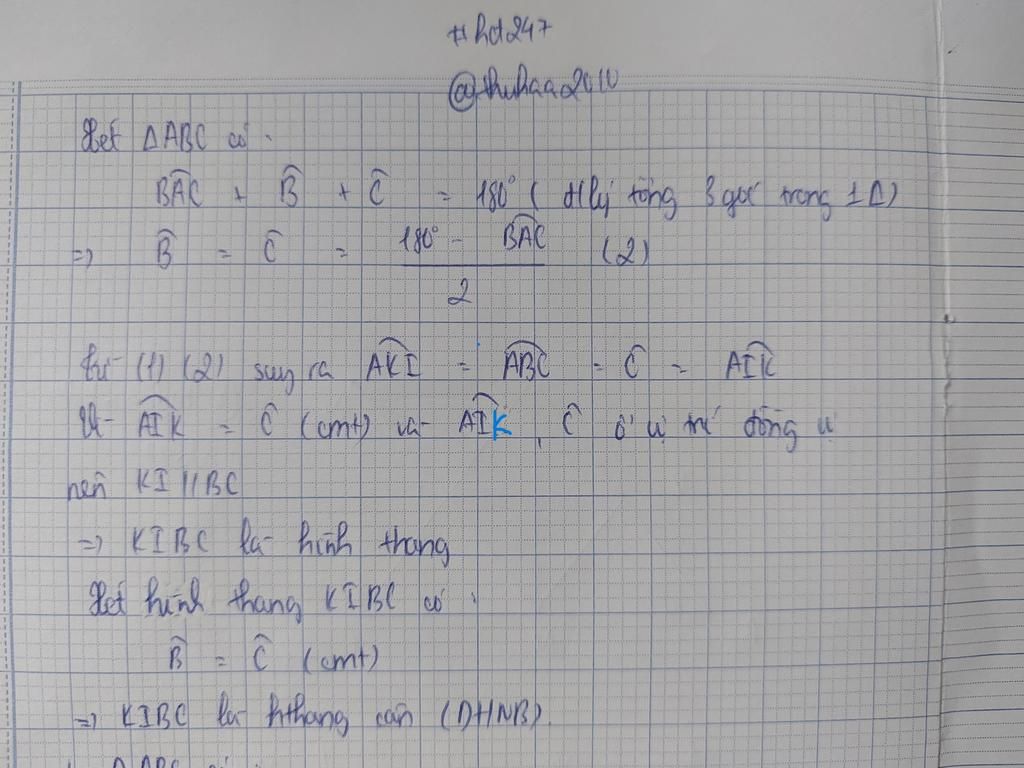 #hd247
@thuhaaa2010
Xét ΔABC có:
BAC + B + C = 180° (đlý tổng 3 góc trong 1Δ)
=> B = C = (180° - BAC) / 2 (2)
từ (1) (2) suy ra AKI = ABC = C = AIK
Vì AIK = C (cmt) và AIK, C ở vị trí đồng vị
nên KI // BC
=> KIBC là hình thang
Xét hình thang KIBC có:
B = C (cmt)
=> KIBC là hthang cân (DHNB)